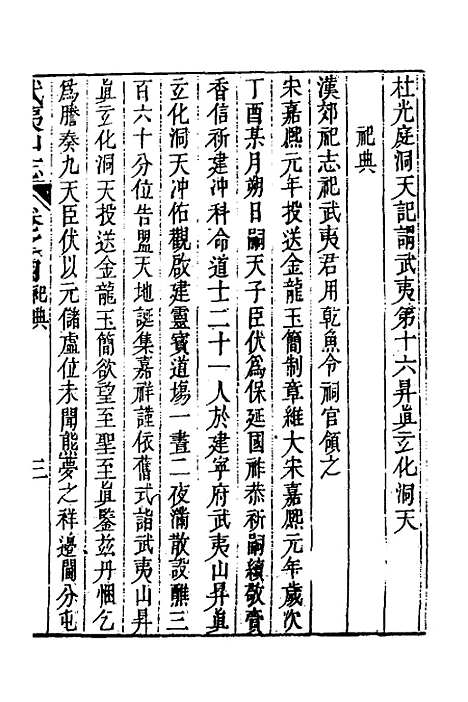 杜光庭洞天記謂武夷第十六昇眞立化洞天
祀典
漢郊祀志祀武夷君用乾魚令祠官領之
宋嘉熈元年投送金龍玉簡制章維大宋嘉熈元年歲次
丁酉某月朔日嗣天子臣伏爲保延國祚恭祈嗣續敬賫
香信祈建冲科命道士二十一人於建寧府武夷山昇眞
立化洞天冲佑觀啟建靈寶道塲一晝二夜滿散設醮三
百六十分位告盟天地誕集嘉祥謹依舊式詣武夷山昇
眞立化洞天投送金龍玉簡欲望至聖至眞鑒茲丹悃乞
爲謄奏九天臣伏以元儲虛位未聞熊夢之祥邊閫分屯
武夷山志
卷之
祀典
三